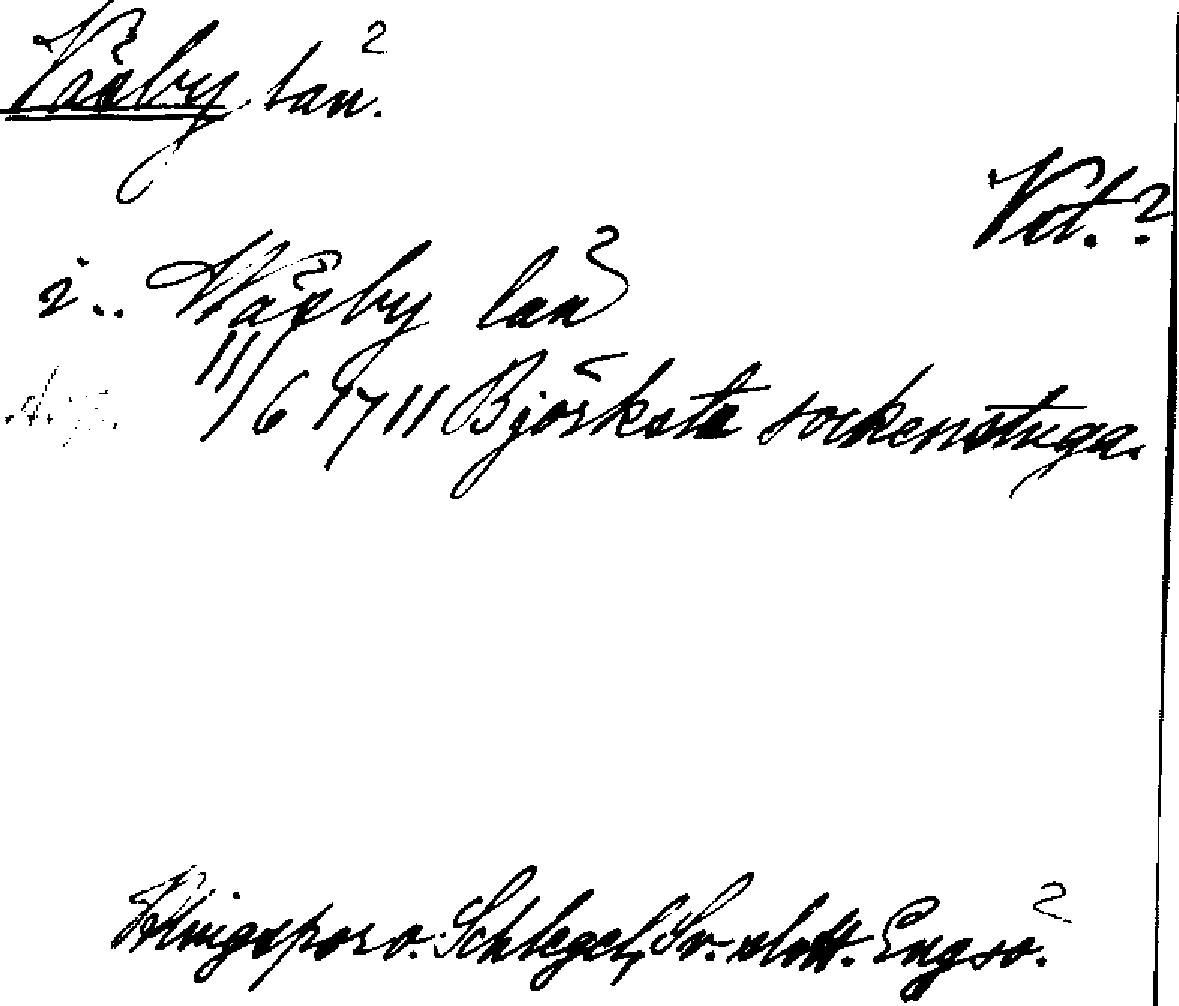 Väsby län.
Vät.?
i.. Wäsby län
11/6 1711 Björksta sockenstuga.
Klingspor o. Schlegel, Sv. slott. Engsö.